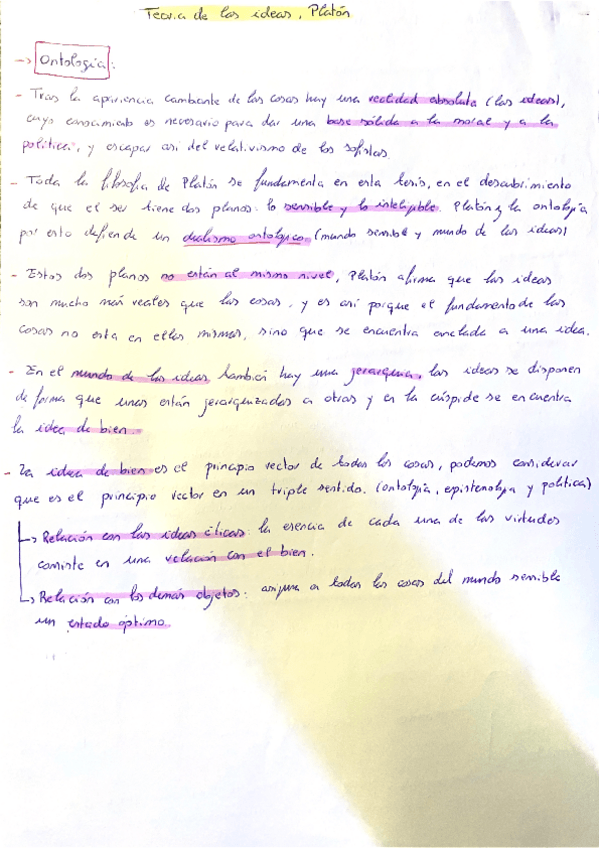 Teoría de las ideas, Platón
→ Ontología:
- Tras la apariencia cambiante de las cosas hay una realidad absoluta (las ideas),
cuyo conocimiento es necesario para dar una base sólida a la moral y a la
política, y escapar así del relativismo de los sofistas.
- Toda la filosofía de Platón se fundamenta en esta tesis, en el descubrimiento
de que el ser tiene dos planos: lo sensible y lo inteligible. Platón y la ontología
por esto defiende un dualismo ontológico. (mundo sensible y mundo de las ideas)
- Estos dos planos no están al mismo nivel, Platón afirma que las ideas
son mucho más reales que las cosas, y es así porque el fundamento de las
cosas no esta en ellas mismas, sino que se encuentra anclada a una idea.
- En el mundo de las ideas también hay una jerarquía, las ideas se disponen
de forma que unas están jerarquizadas a otras y en la cúspide se encuentra
la idea de bien.
- La idea de bien es el principio rector de todas las cosas, podemos considerar
que es el principio rector en un triple sentido. (ontología, epistemología y política)
↳ Relación con las ideas éticas: la esencia de cada una de las virtudes
consiste en una relación con el bien.
↳ Relación con los demás objetos: asigura a todas las cosas del mundo sensible
un estado óptimo.